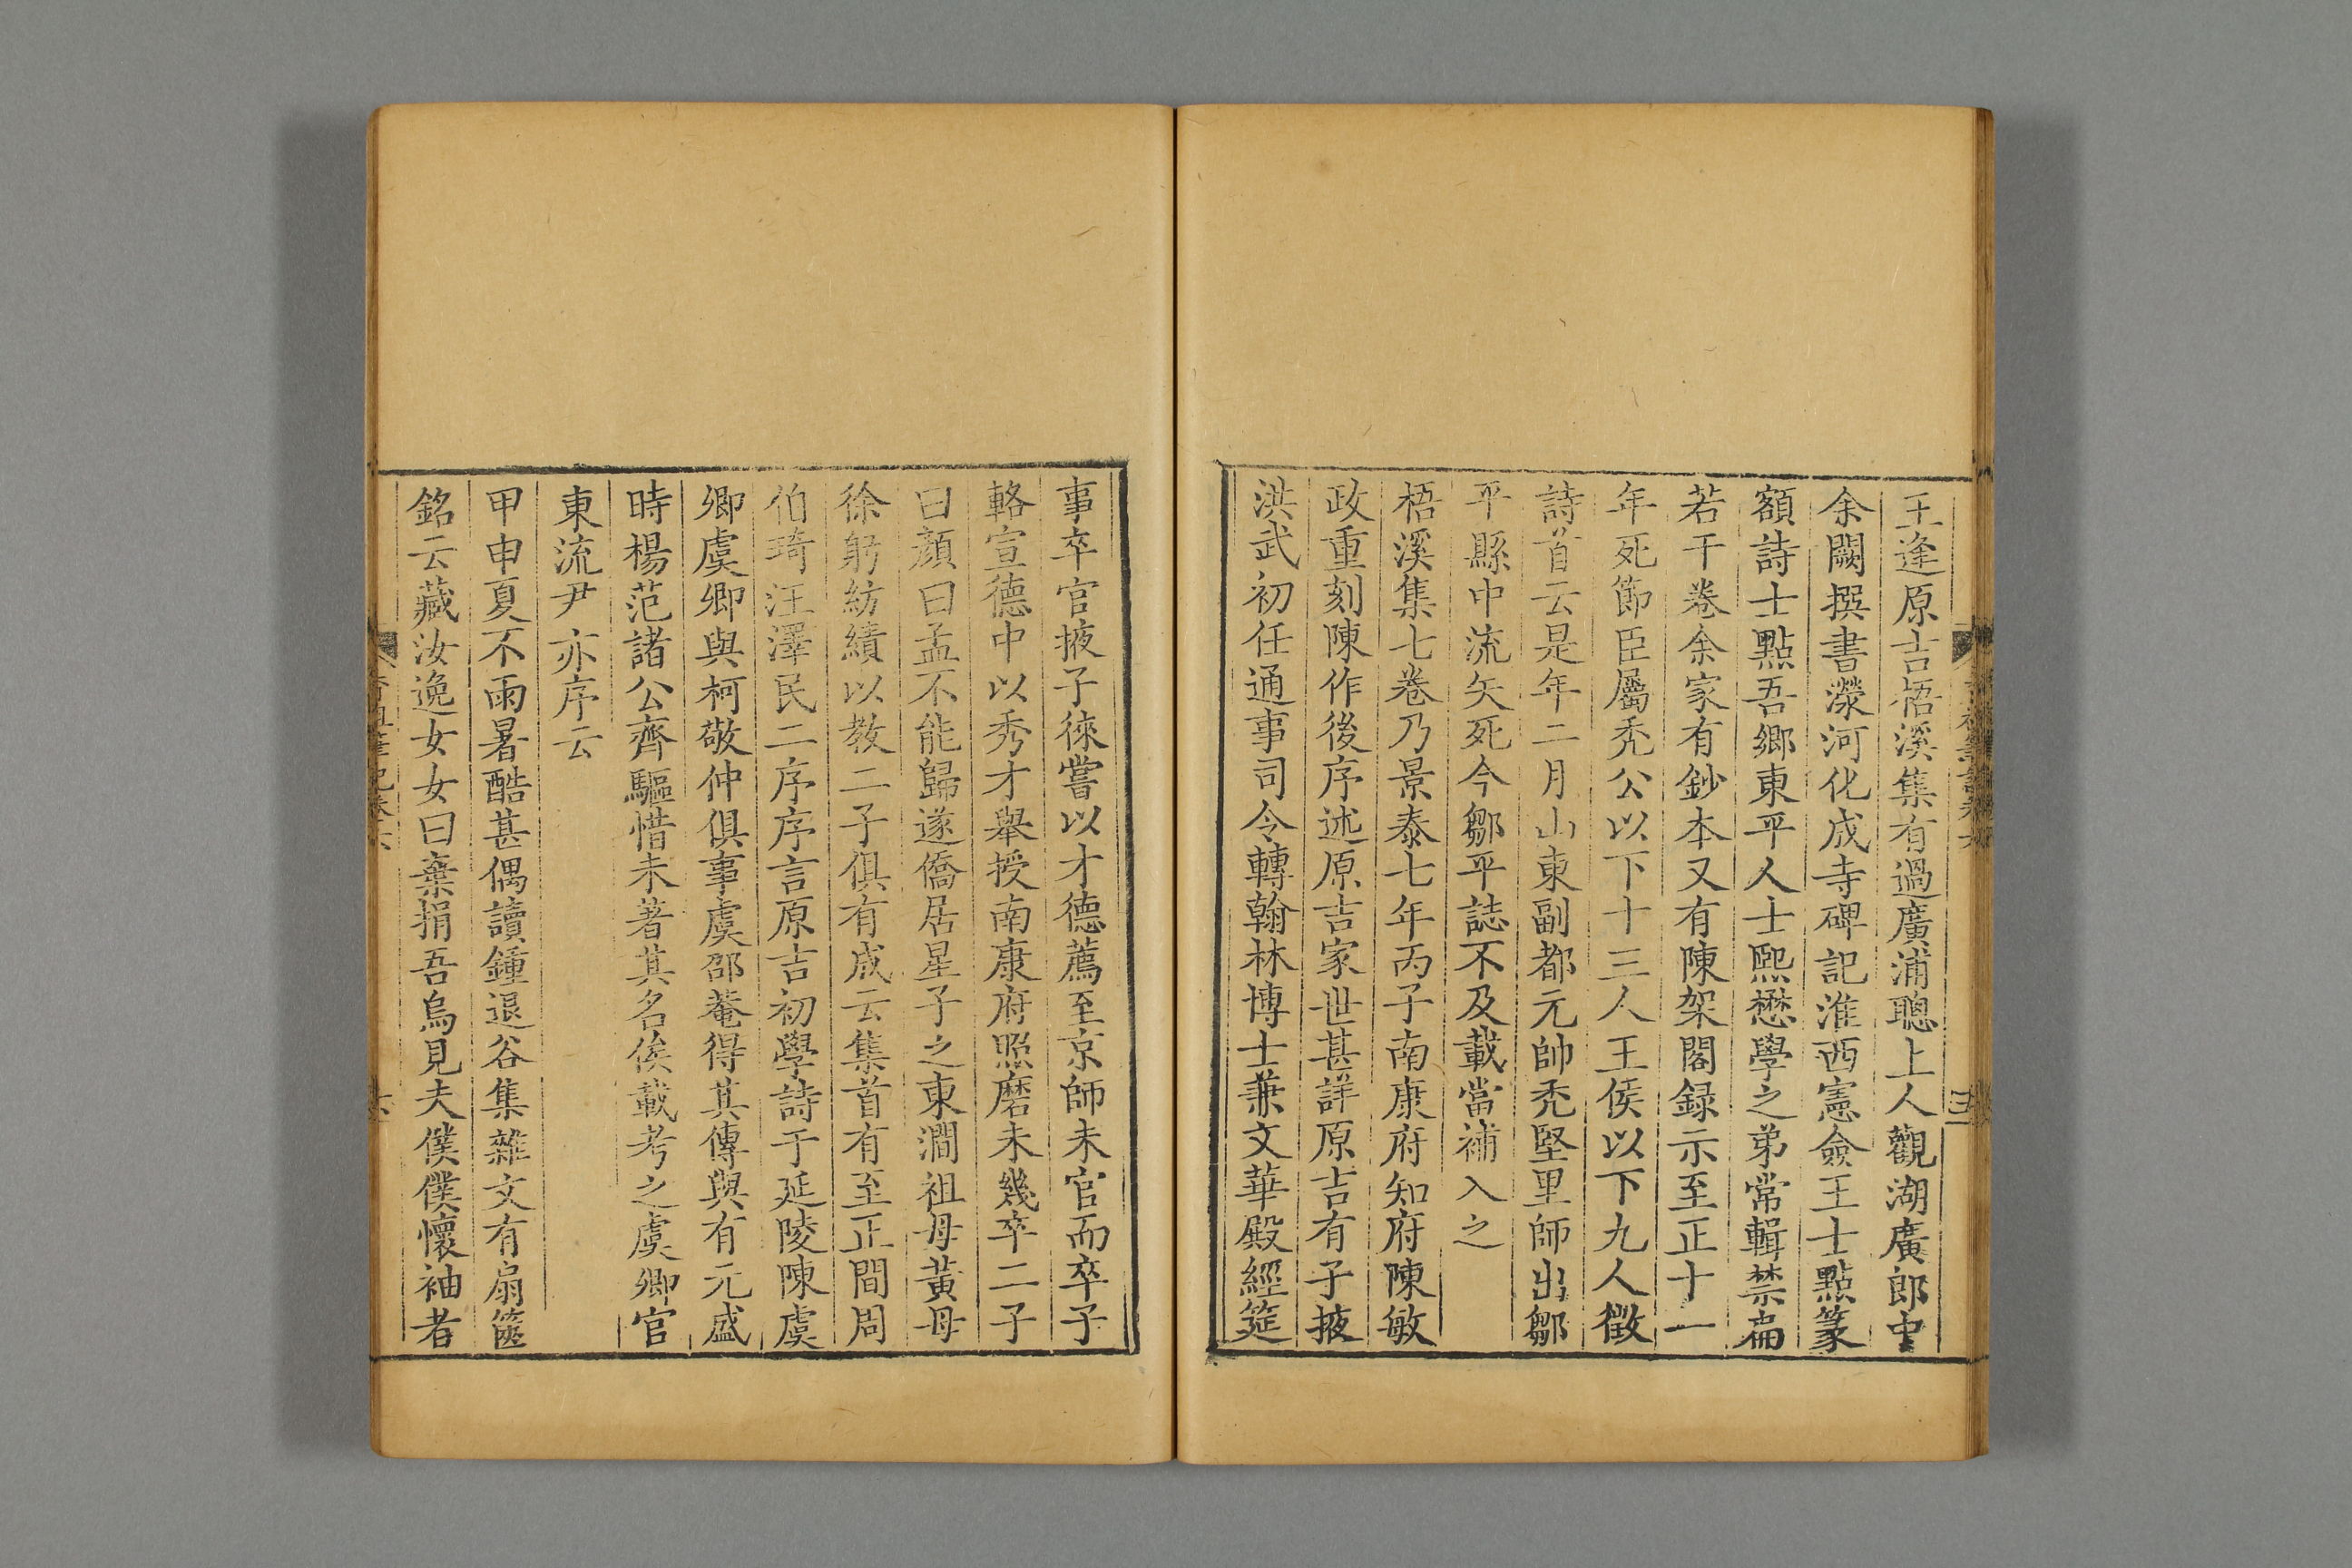 王逢原吉梧溪集有過廣浦聰上人觀湖廣郎中
余闕撰書濚河化成寺碑記淮西憲僉王士點篆
額詩士點吾鄉東平人士熙懋學之弟常輯禁扁
若干卷余家有鈔本又有陳架閣録示至正十一
年死節臣屬禿公以下十三人王侯以下九人徵
詩首云是年二月山東副都元帥禿堅里師出鄒
平縣中流矢死今鄒平誌不及載當補入之
梧溪集七卷乃景泰七年丙子南康府知府陳敏
政重刻陳作後序述原吉家世甚詳原吉有子掖
洪武初任通事司令轉翰林博士兼文華殿經筵
事卒官掖子徠嘗以才德薦至京師未官而卒子
輅宣德中以秀才舉授南康府照磨未幾卒二子
曰顏曰孟不能歸遂僑居星子之東澗祖母黃母
徐躬紡績以教二子俱有成云集首有至正間周
伯琦汪澤民二序序言原吉初學詩于延陵陳虞
卿虞卿與柯敬仲俱事虞邵菴得其傳與有元盛
時楊范諸公齊驅惜未著其名俟載考之虞卿官
東流尹亦序云
甲申夏不雨暑酷甚偶讀鍾退谷集雜文有扇篋
銘云藏汝逸女女曰棄捐吾烏見夫僕僕懷袖者